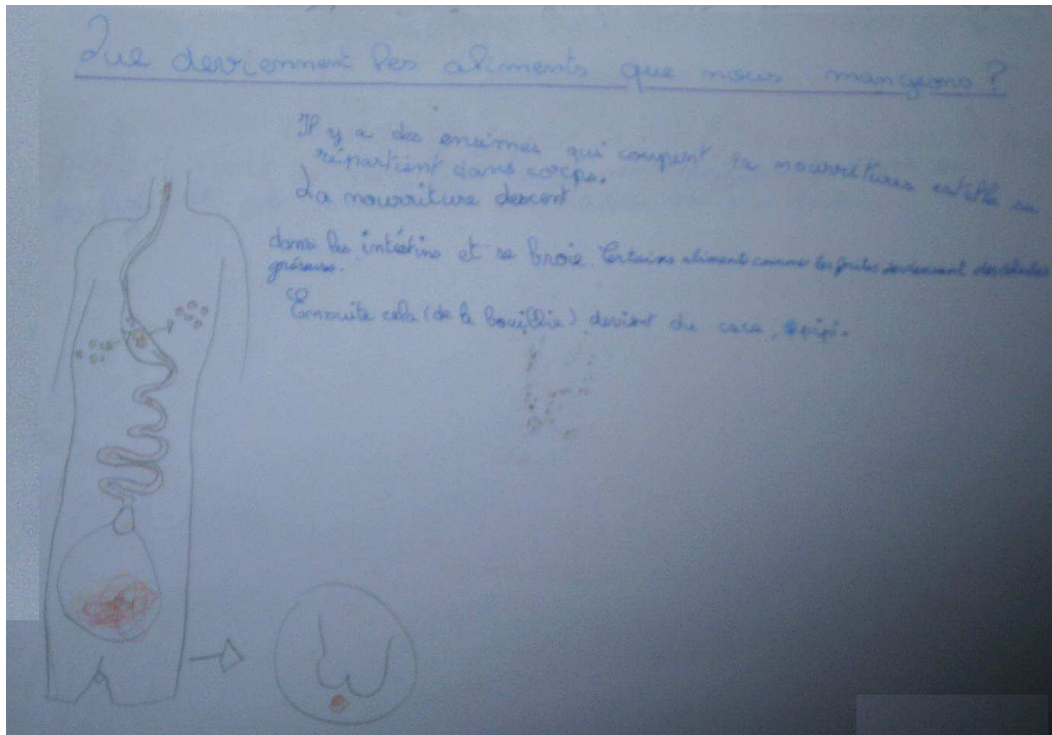 Que deviennent les aliments que nous mangeons ?
Il y a des ensimes qui coupent la nourritures et elle se
répartient dans corps.
La nourriture descent
dans les intéstins et se broie Certains aliment comme les frites deviennent des
graisses.
Ensuite cela (de la bouillie) devient du caca, pipi.